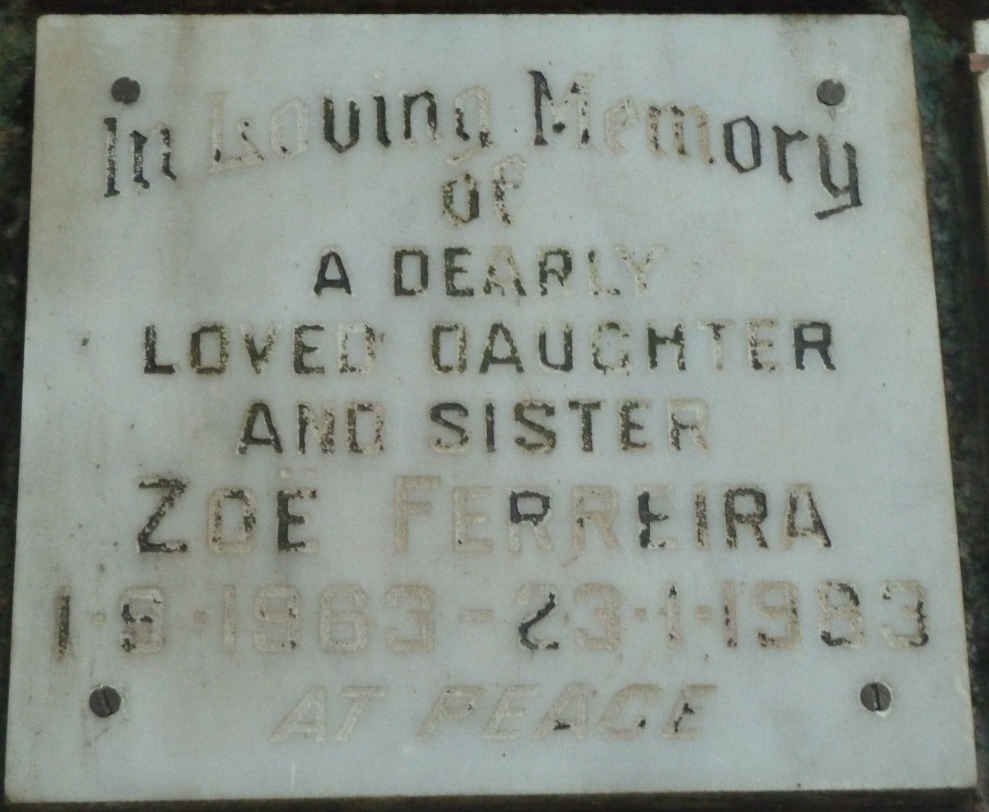 In Loving Memory
of
A DEARLY
LOVED DAUGHTER
AND SISTER
ZOË FERREIRA
1·8·1963-23·1·1983
AT PEACE